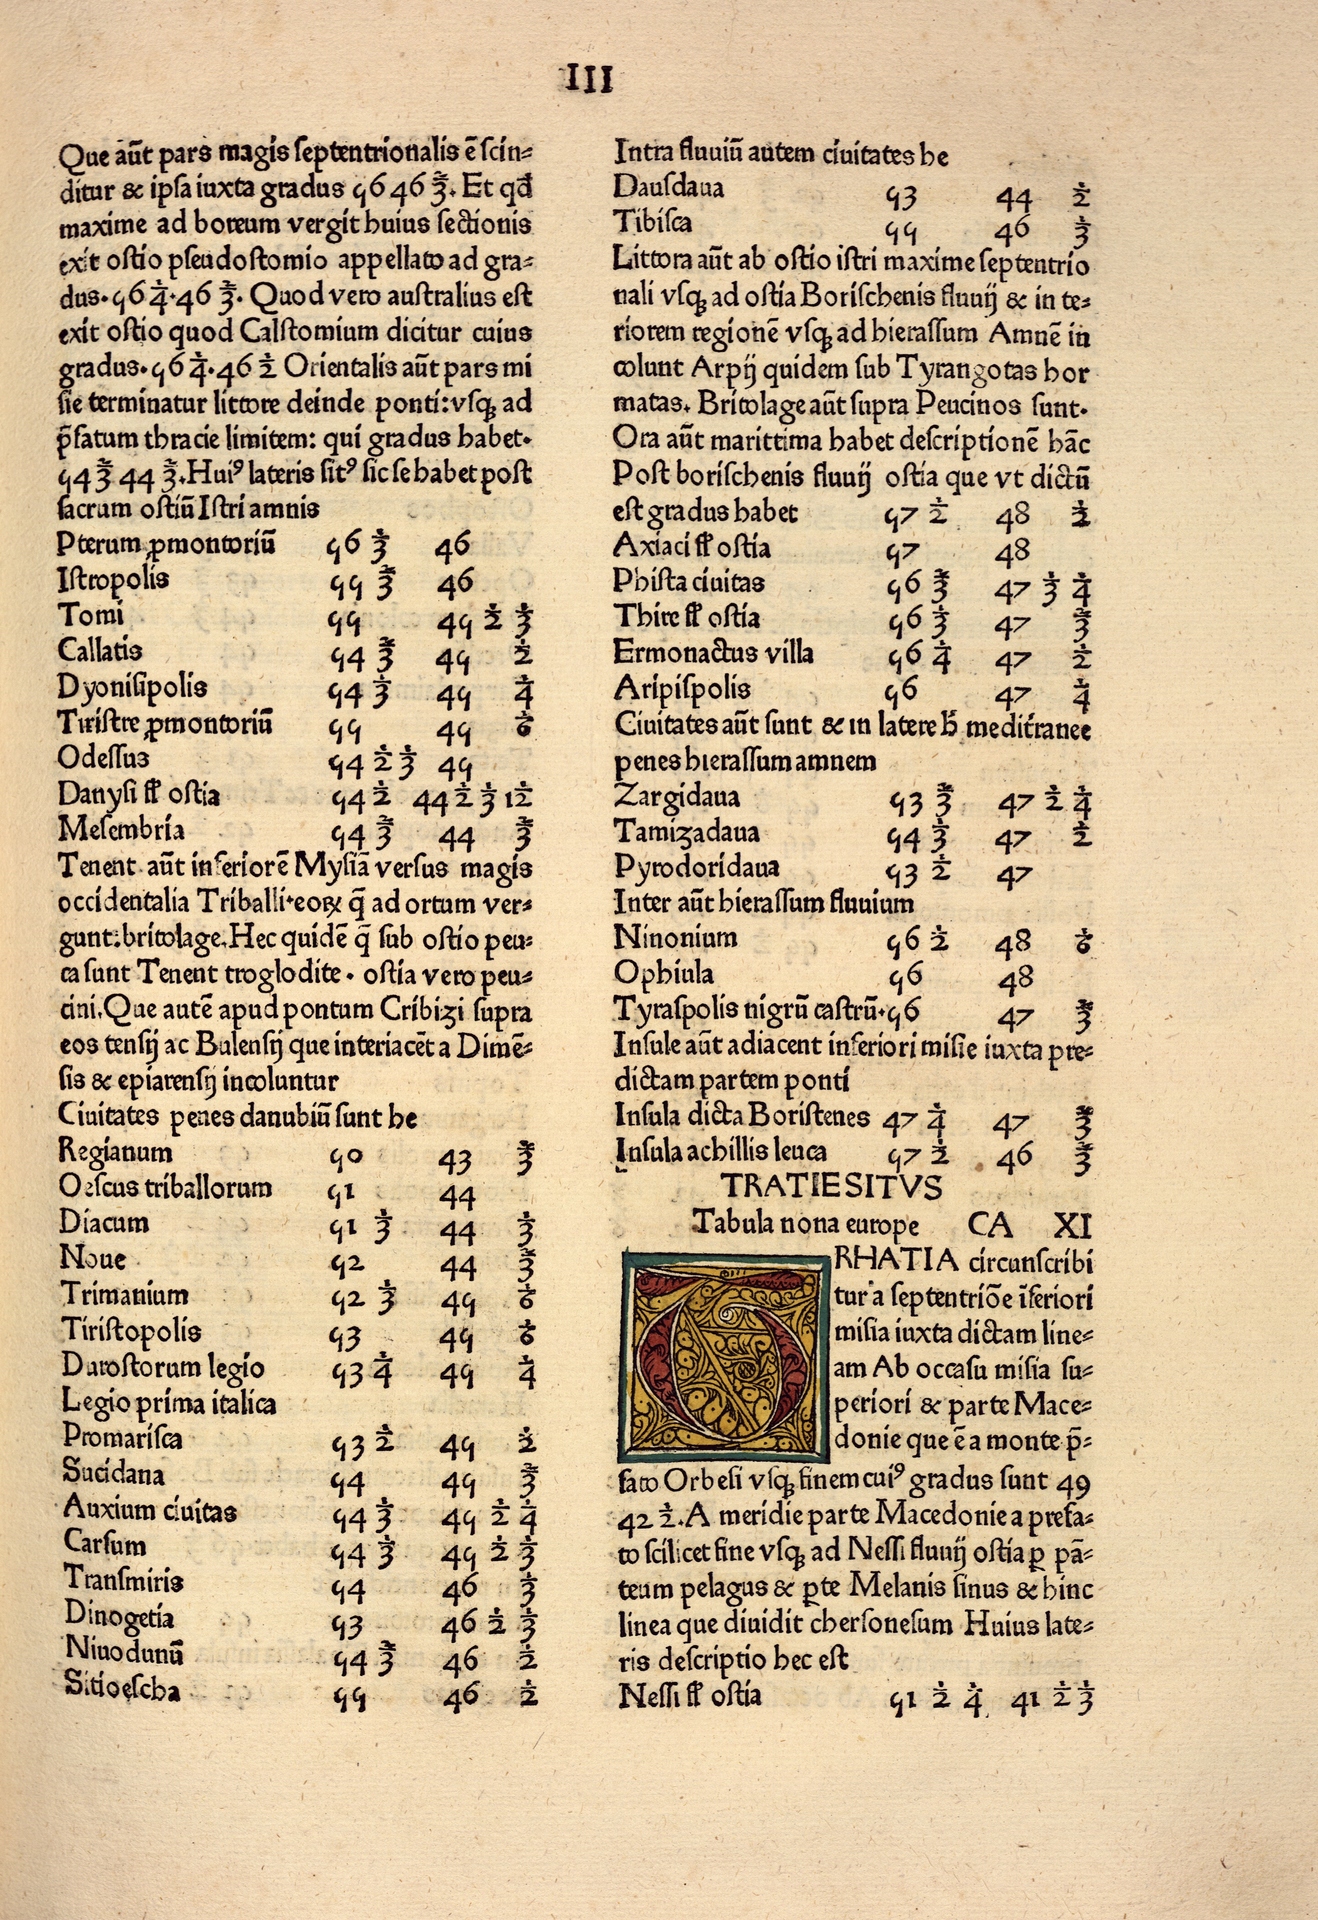 III
Que aūt pars magis ſeptentrionalis ē ſcin⸗
ditur & ipſa iuxta gradus 56 46 ⅔. Et qđ
maxime ad boreum vergit huius ſectionis
exit oſtio pſeudoſtomio appellato ad gra⸗
dus. 56 ¼. 46 ⅔. Quod vero auſtralius eſt
exit oſtio quod Calſtomium dicitur cuius
gradus. 56 ¼. 46 ½ Orientalis aūt pars mi
ſie terminatur littore deinde ponti: vſqꝫ ad
p̄fatum thracie limitem: qui gradus habet.
54 ⅔ 44 ⅔. Huiꝰ lateris ſitꝰ ſic ſe habet poſt
ſacrum oſtiū Iſtri amnis
Pterum ꝓmontoriū 56 ⅓ 46
Iſtropolis 55 ⅔ 46
Tomi 55 45 ½ ⅓
Callatis 54 ⅔ 45 ½
Dyoniſipolis 54 ⅓ 45 ¼
Tiriſtre ꝓmontoriū 55 45 ⅙
Odeſſus 54 ½ ⅓ 45
Danyſi fl̄ oſtia 54 ½ 44 ½ ⅓ 1/12
Meſembria 54 ⅔ 44 ⅔
Tenent aūt inferiorē Myſiā verſus magis
occidentalia Triballi. eoꝝ q̄ ad ortum ver⸗
gunt: britolage. Hec quidē q̄ ſub oſtio peu⸗
ca ſunt Tenent troglodite. oſtia vero peu⸗
cini. Que autē apud pontum Cribizi ſupra
eos tenſij ac Bulenſij que interiacēt a Dimē⸗
ſis & epiarenſij incoluntur
Ciuitates penes danubiū ſunt he
Regianum 50 43 ⅔
Oeſcus triballorum 51 44
Diacum 51 ⅓ 44 ⅓
Noue 52 44 ⅔
Trimanium 52 ⅓ 45 ⅙
Tiriſtopolis 53 45 ⅙
Duroſtorum legio 53 ¼ 45 ¼
Legio prima italica
Promariſca 53 ½ 45 ½
Sucidana 54 45 ⅔
Auxium ciuitas 54 ⅓ 45 ½ ¼
Carſum 54 ⅓ 45 ½ ⅓
Tranſmiris 54 46 ⅓
Dinogetia 53 46 ½ ⅓
Niuodunū 54 ⅔ 46 ½
Sitioeſcha 55 46 ½
Intra fluuiū autem ciuitates he
Dauſdaua 53 44 ½
Tibiſca 55 46 ⅓
Littora aūt ab oſtio iſtri maxime ſeptentrio
nali vſqꝫ ad oſtia Boriſchenis fluuij & in te⸗
riorem regionē vſqꝫ ad hieraſſum Amnē in
colunt Arpij quidem ſub Tyrangotas hor
matas. Britolage aūt ſupra Peucinos ſunt.
Ora aūt marittima habet deſcriptionē hāc
Poſt boriſchenis fluuij oſtia que vt dictū
eſt gradus habet 57 ½ 48 ½
Axiaci fl̄ oſtia 57 48
Phiſta ciuitas 56 ⅔ 47 ⅓ ¼
Thire fl̄ oſtia 56 ⅓ 47 ⅔
Ermonactus villa 56 ¼ 47 ½
Aripiſpolis 56 47 ¼
Ciuitates aūt ſunt & in latere h̄ meditranee
penes hieraſſum amnem
Zargidaua 53 ⅔ 47 ½ ¼
Tamizadaua 54 ⅓ 47 ½
Pyrodoridaua 53 ½ 47
Inter aūt hieraſſum fluuium
Ninonium 56 ½ 48 ⅙
Ophiula 56 48
Tyraſpolis nigrū caſtrū. 56 47 ⅔
Inſule aūt adiacent inferiori miſie iuxta pre⸗
dictam partem ponti
Inſula dicta Boriſtenes 47 ¼ 47 ⅔
Inſula achillis leuca 57 ½ 46 ⅔
TRATIE SITVS
Tabula nona europe CA XI
TRHATIA circunſcribi
tur a ſeptentriōe īferiori
miſia iuxta dictam line⸗
am Ab occaſu miſia ſu⸗
periori & parte Mace⸗
donie que ē a monte p̄⸗
fato Orbeſi vſqꝫ finem cuiꝰ gradus ſunt 49
42 ½. A meridie parte Macedonie a prefa⸗
to ſcilicet fine vſqꝫ ad Neſſi fluuij oſtia ꝑ pā⸗
teum pelagus & ꝑte Melanis ſinus & hinc
linea que diuidit cherſoneſum Huius late⸗
ris deſcriptio hec eſt
Neſſi fl̄ oſtia 51 ½ ¼ 41 ½ ⅓